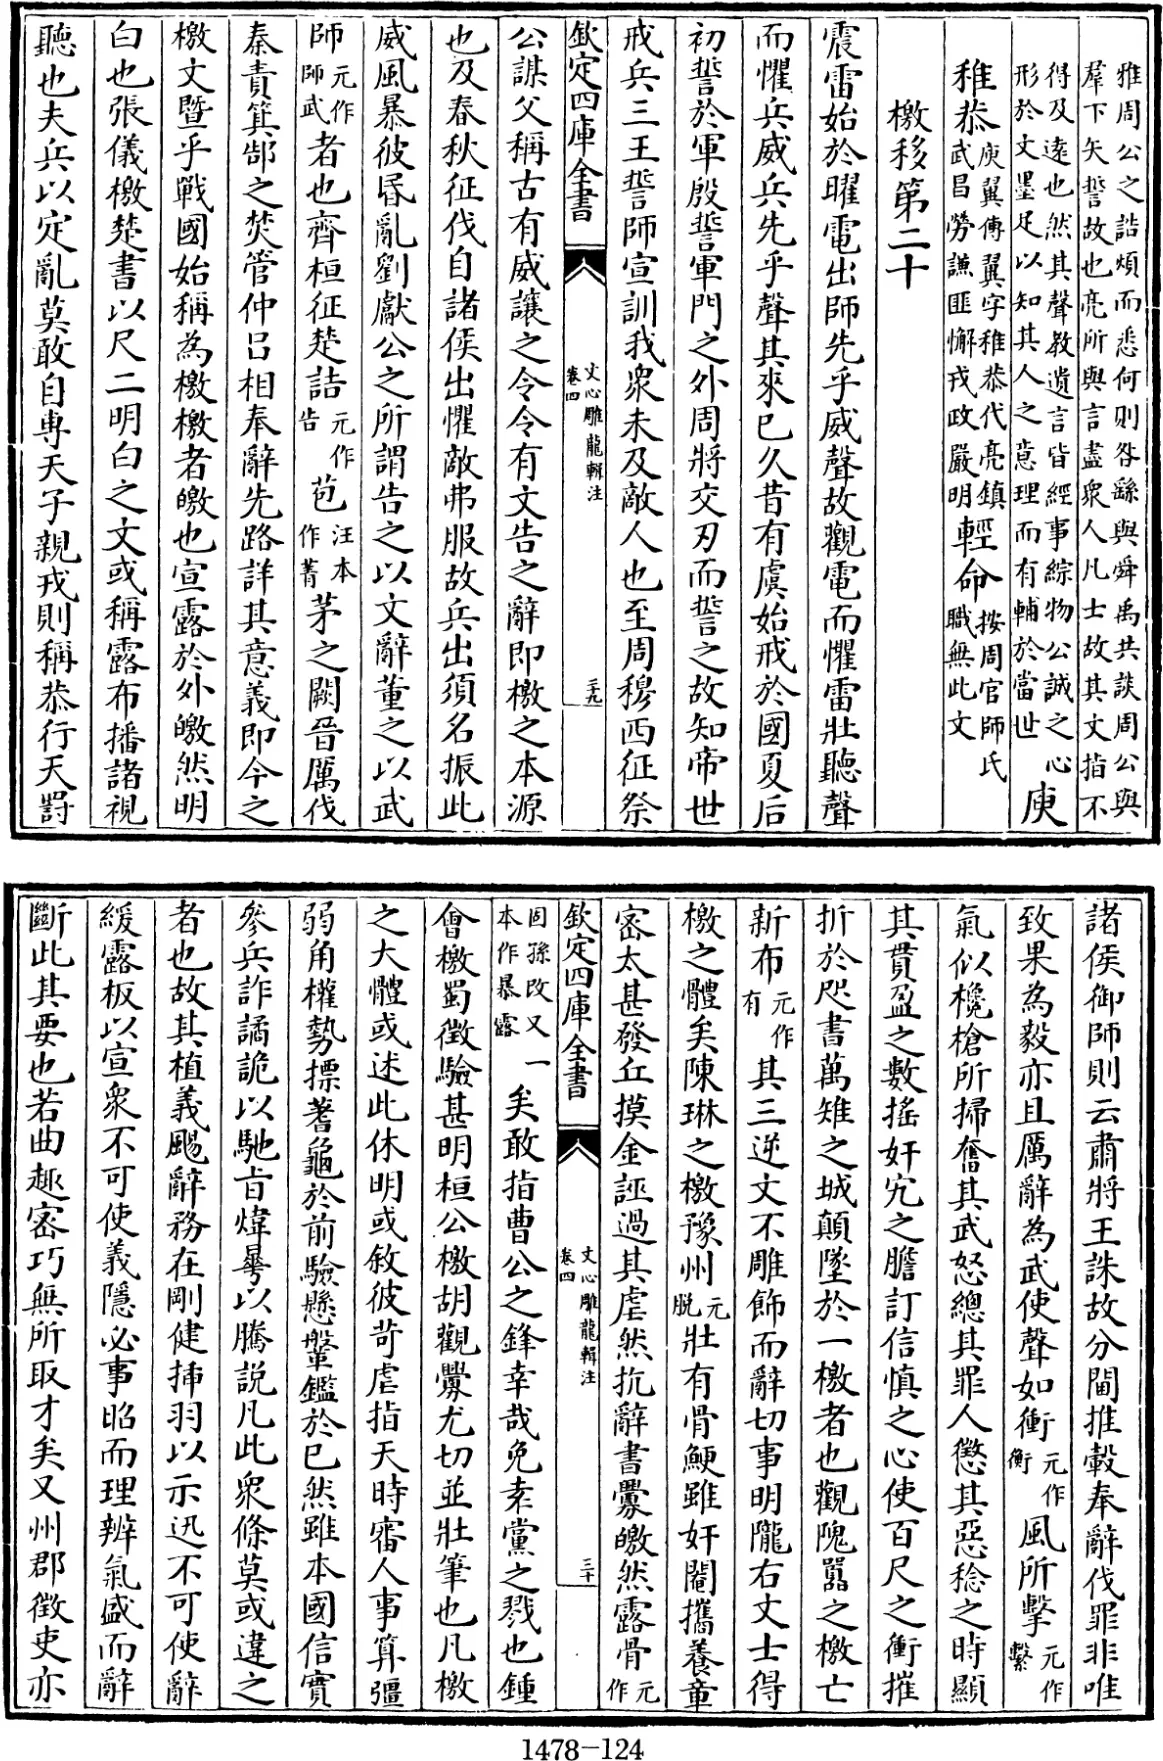 雅周公之誥煩而悉何則咎繇與舜禹共談周公與
羣下矢誓故也亮所與言盡衆人凡士故其文指不
得及遠也然其聲教遺言皆經事綜物公誠之心
形於文墨足以知其人之意理而有輔於當世庾
稚恭庾翼傳翼字稚恭代亮鎮武昌勞謙匪懈戎政嚴明輕命按周官師氏職無此文
檄移第二十
震雷始於曜電出師先乎威聲故觀電而懼雷壯聽聲
而懼兵威兵先乎聲其來已久昔有虞始戒於國夏后
初誓於軍殷誓軍門之外周將交刃而誓之故知帝世
戒兵三王誓師宣訓我衆未及敵人也至周穆西征祭
欽定四庫全書
文心雕龍輯注
卷四
三九
公謀父稱古有威讓之令令有文告之辭即檄之本源
也及春秋征伐自諸侯出懼敵弗服故兵出須名振此
威風暴彼昏亂劉獻公之所謂告之以文辭董之以武
師元作師武者也齊桓征楚詰元作告苞汪本作菁茅之闕晉厲伐
秦責箕郜之焚管仲呂相奉辭先路詳其意義即今之
檄文暨乎戰國始稱為檄檄者皦也宣露於外皦然明
白也張儀檄楚書以尺二明白之文或稱露布播諸視
聽也夫兵以定亂莫敢自專天子親戎則稱恭行天罰
諸侯御師則云肅將王誅故分閫推轂奉辭伐罪非唯
致果為毅亦且厲辭為武使聲如衝元作衡風所擊元作繫
氣似欃槍所掃奮其武怒總其罪人懲其惡稔之時顯
其貫盈之數搖奸宄之膽訂信慎之心使百尺之衝摧
折於咫書萬雉之城顛墜於一檄者也觀隗囂之檄亡
新布元作有其三逆文不雕飾而辭切事明隴右文士得
檄之體矣陳琳之檄豫州元脱壯有骨鯁雖奸閹攜養章
密太甚發丘摸金誣過其虐然抗辭書釁皦然露骨元作
欽定四庫全書
文心雕龍輯注
卷四
三十
固孫改又一本作暴露矣敢指曹公之鋒幸哉免袁黨之戮也鍾
會檄蜀徵驗甚明桓公檄胡觀釁尤切並壯筆也凡檄
之大體或述此休明或敘彼苛虐指天時審人事算彊
弱角權勢標蓍龜於前驗懸鞶鑑於已然雖本國信實
參兵詐譎詭以馳旨煒曄以騰説凡此衆條莫或違之
者也故其植義颺辭務在剛健揷羽以示迅不可使辭
緩露板以宣衆不可使義隱必事昭而理辨氣盛而辭
斷此其要也若曲趣密巧無所取才矣又州郡徵吏亦
1478-124